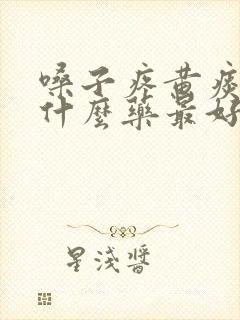 嗓子疼黄痰
什麼藥最好
星淺醬